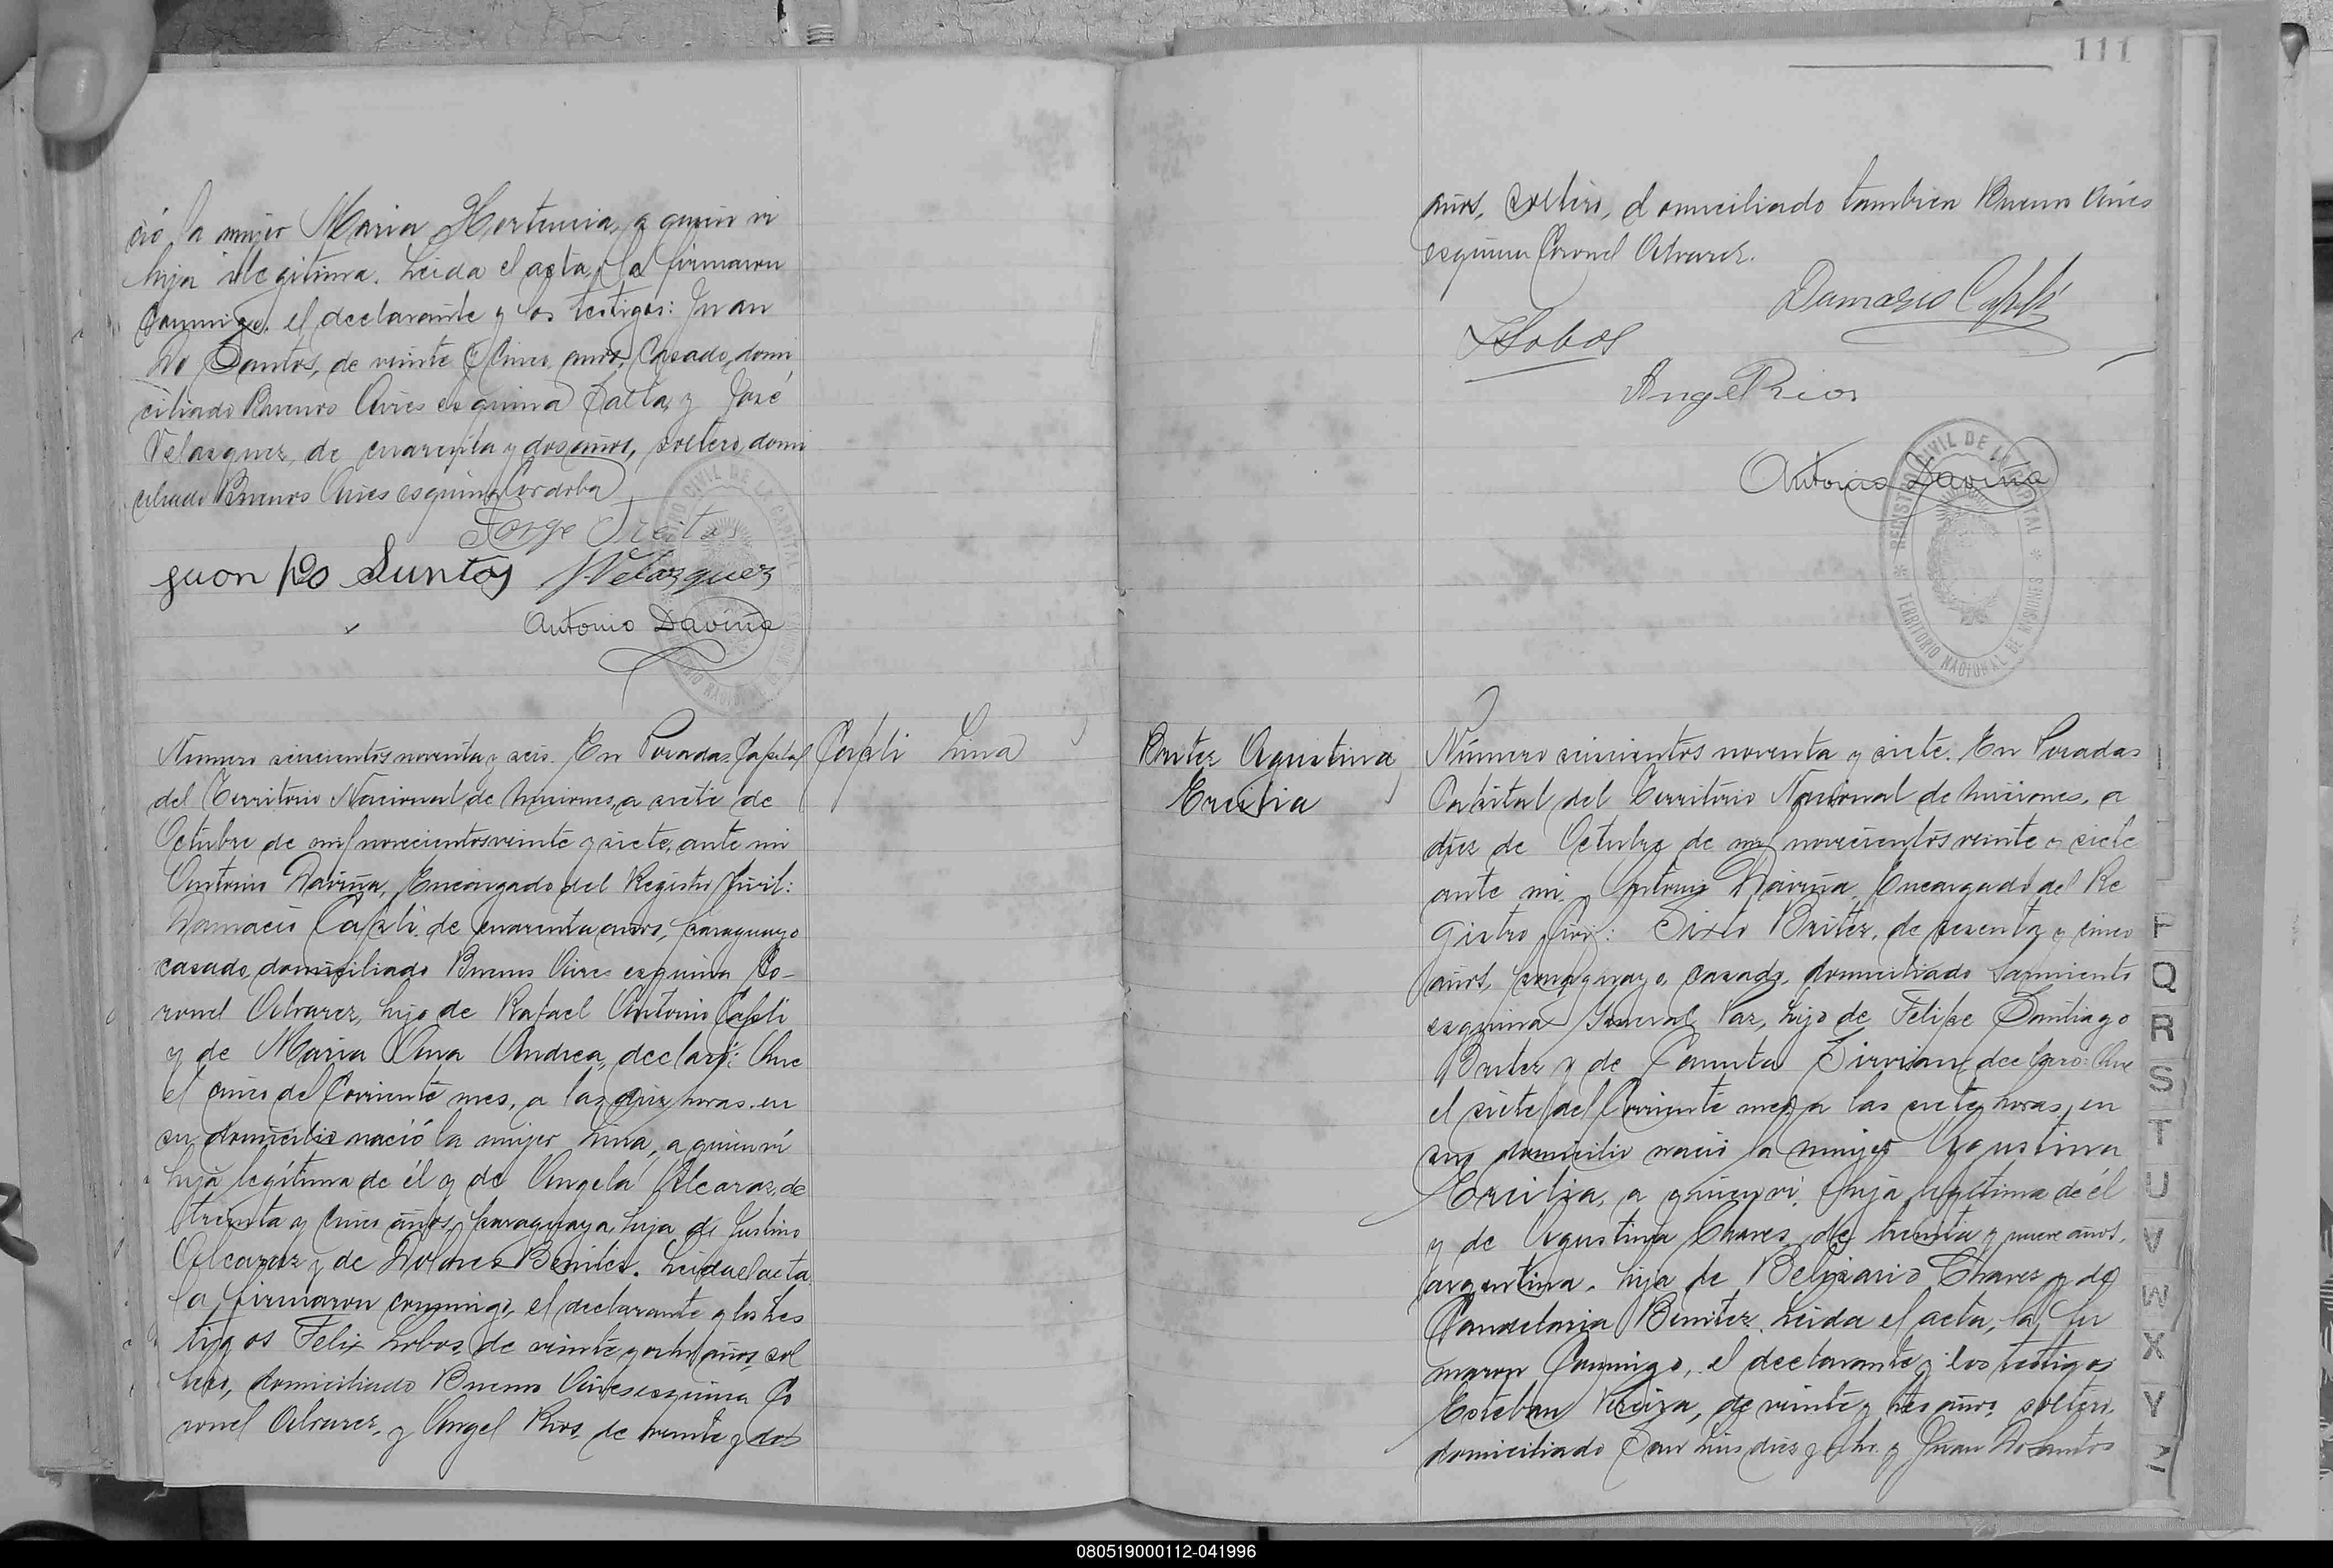 ció la mujer Maria Hortencia, a quien vi
hija ilegitima. Leida el acta, la firmaron
conmigo, el declarante y los testigos: Juan
Do Santos, de veinte y cinco años, casado, domi
ciliado Buenos Aires esquina Salta, y José
Velasquez, de cuarenta y dos años, soltero, domi
ciliado Buenos Aires esquina Cordoba
Jorge Freitas
juon Do Suntos JVelasquez
Antonio Daviña
Numero seiscientos noventa y seis. En Posadas, Capital
del Territorio Nacional de Misiones, a siete de
Octubre de mil novecientos veinte y siete, ante mi
Antonio Daviña, Encargado del Registro Civil:
Damacio Capli, de cuarenta años, paraguayo
casado, domiciliado Buenos Aires esquina Co-
ronel Alvarez, hijo de Rafael Antonio Capli
y de Maria Ana Andrea, declaró: Que
el cinco del corriente mes, a las diez horas, en
su domicilio nació la mujer Lina, a quien vi
hija legítima de él y de Angela Alcaraz, de
treinta y cinco años, paraguaya, hija de Justino
Alcaraz y de Dolores Benites. Leida el acta
la firmaron conmigo, el declarante y los tes
tigos Felix Lobos, de veinte y ocho años, sol
tero, domiciliado Buenos Aires esquina Co
ronel Alvarez, y Angel Rios, de treinta y dos
Capli Lina
111
años, soltero, domiciliado tambien Buenos Aires
esquina Coronel Alvarez.
Damasio Capli
FLobos
Angel Rios
Antonio Daviña
REGISTRO CIVIL DE LA CAPITAL
TERRITORIO NACIONAL DE MISIONES
Britez Agustina
Ercilia
Número seiscientos noventa y siete. En Posadas
Capital del Territorio Nacional de Misiones, a
diez de Octubre de mil novecientos veinte y siete
ante mi Antonio Daviña, Encargado del Re
gistro Civil: Sixto Britez, de sesenta y cinco
años, paraguayo, casado, domiciliado Sarmiento
esquina General Paz, hijo de Felipe Santiago
Britez y de Canuta declaró: Que
el siete del corriente mes, a las siete horas, en
su domicilio nació la mujer Agustina
Ercilia, a quien vi, hija legítima de él
y de Agustina Chaves, de treinta y nueve años,
argentina, hija de Belisario Chaves y de
Candelaria Benitez. Leida el acta, la fir
maron conmigo, el declarante y los testigos
Esteban de veinte y tres años, soltero,
domiciliado San Luis diez y ocho, y Juan Dosantos
P
Q
R
S
T
U
V
W
X
Y
Z
080519000112-041996